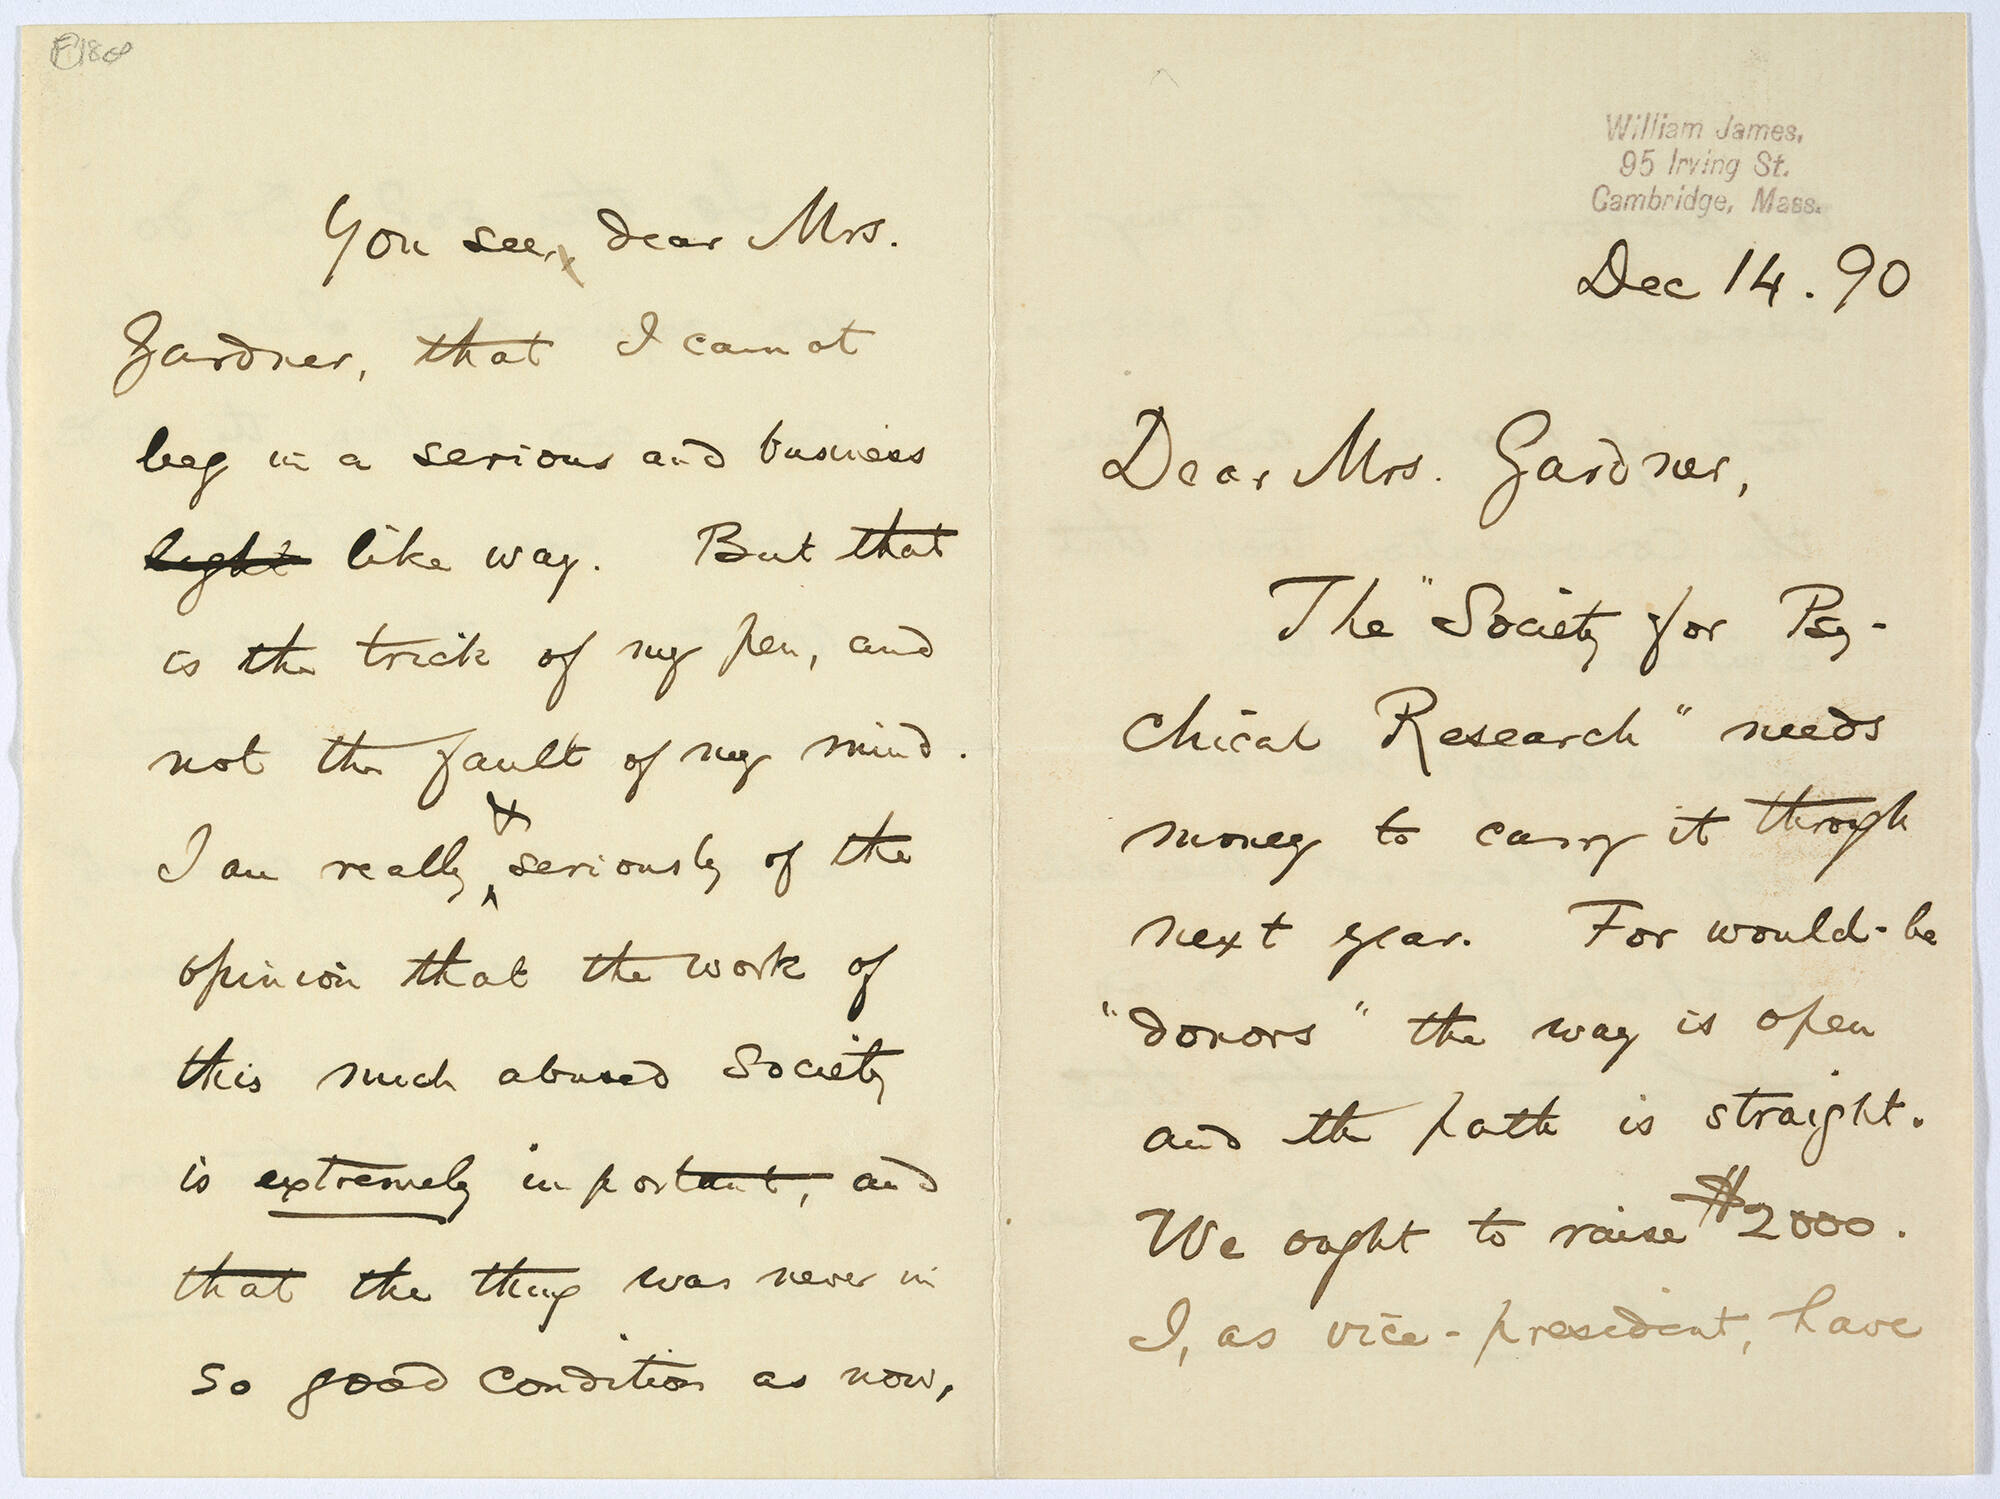 William James,
95 Irving St.
Cambridge, Mass.
Dec 14. 90
Dear Mrs. Gardner,
The "Society for Psy-
chical Research" needs
money to carry it through
next year. For would-be
"donors" the way is open
and the path is straight.
We ought to raise $2000.
I, as vice-president, have
You see, dear Mrs.
Gardner, that I cannot
beg in a serious and business
light like way. But that
is the trick of my pen, and
not the fault of my mind.
I am really & seriously of the
opinion that the work of
this much abused Society
is extremely important, and
that the thing was never in
so good condition as now,